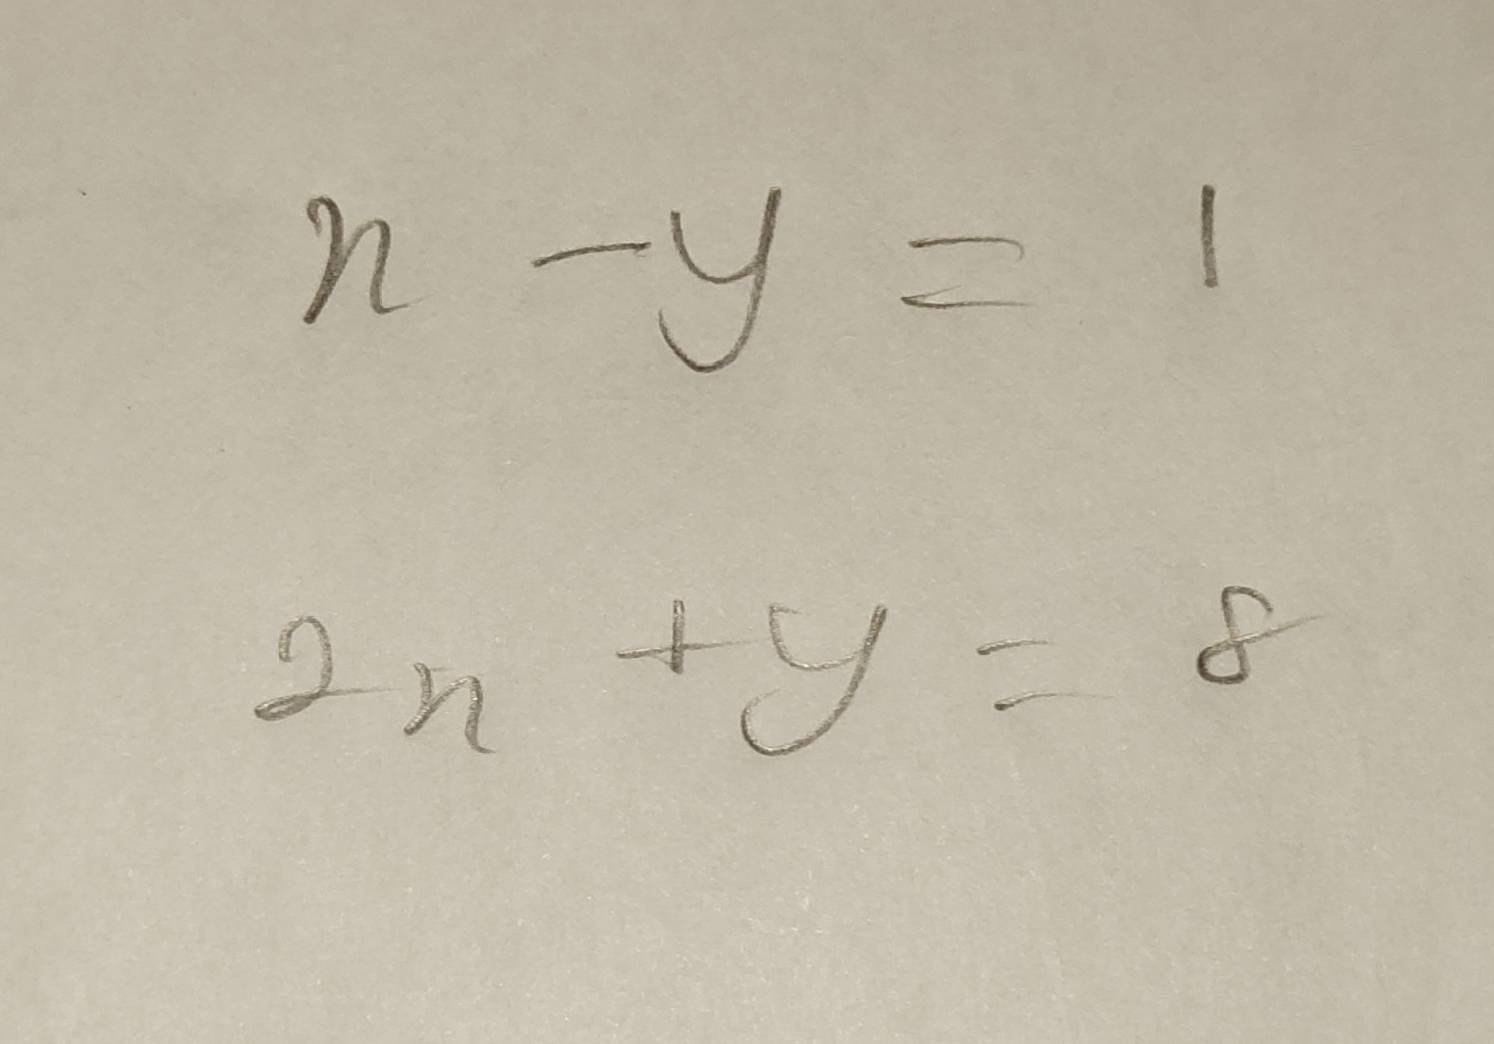 x - y = 1
2x + y = 8